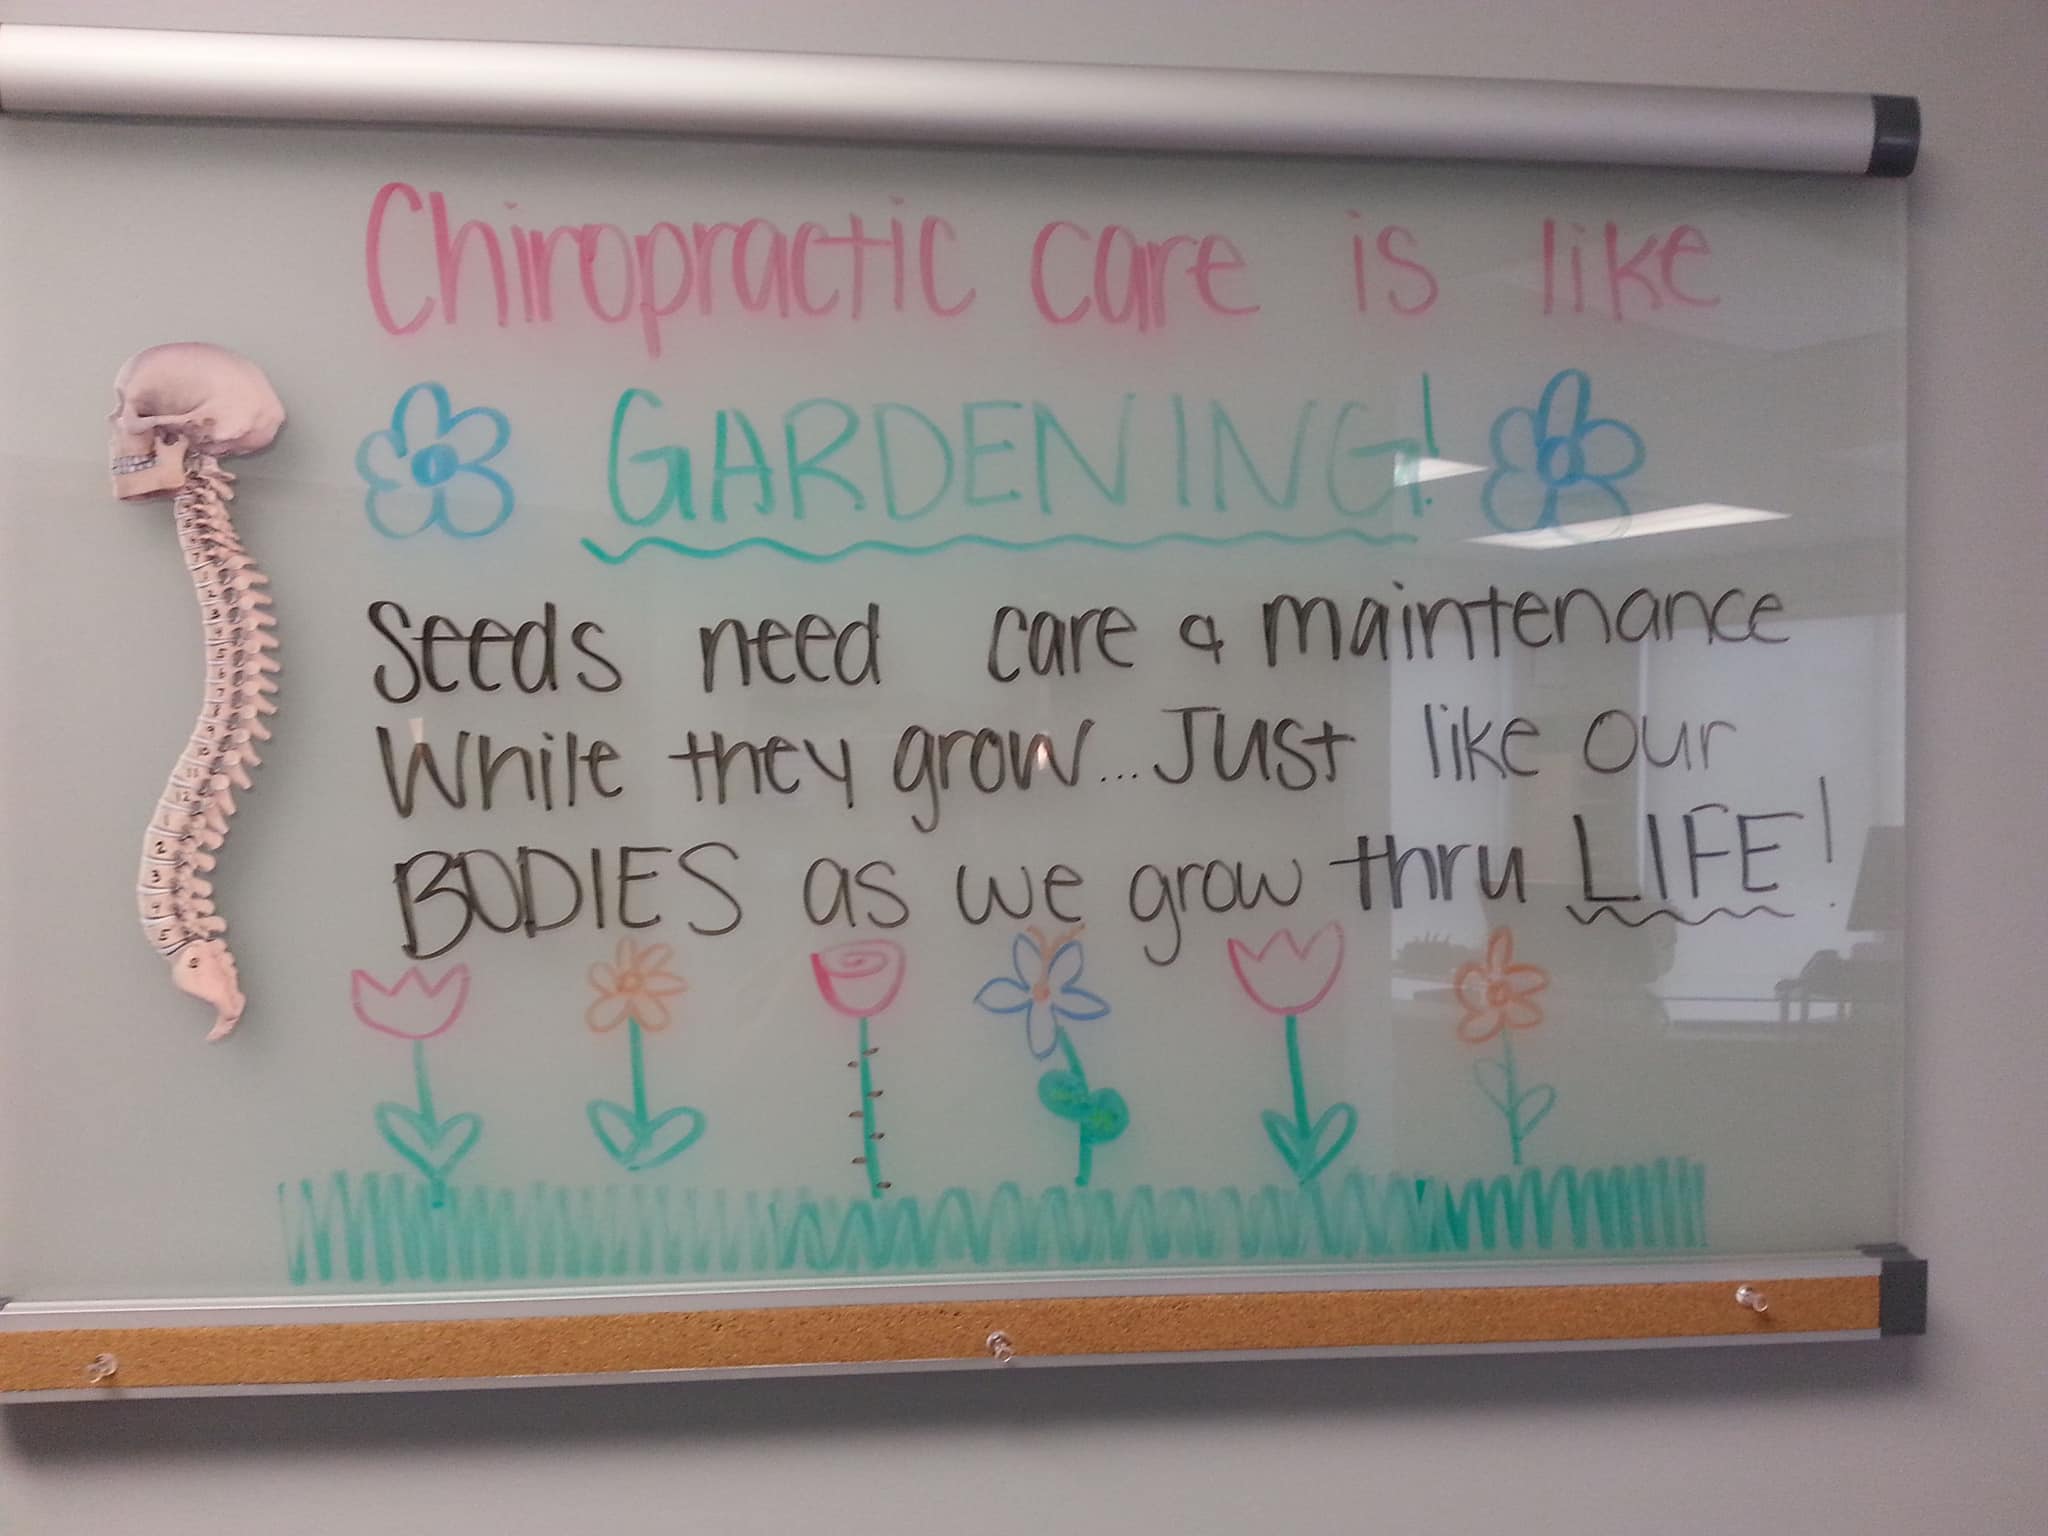 Chiropractic care is like
GARDENING!
Seeds need care & maintenance
While they grow... Just like our
BODIES as we grow thru LIFE!